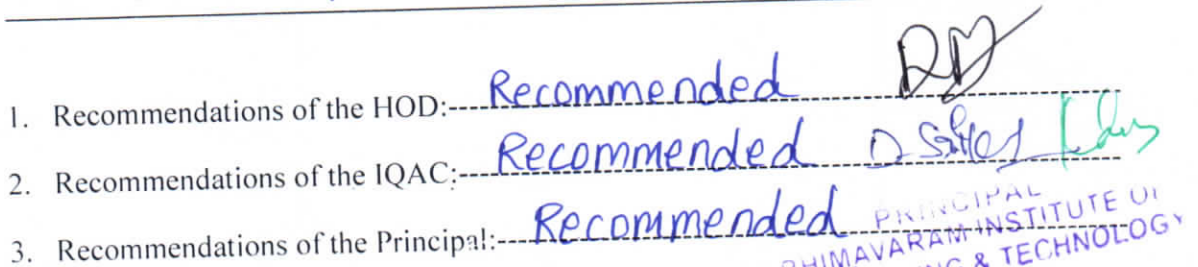 1. Recommendations of the HOD:----Recommended
2. Recommendations of the IQAC:----Recommended
3. Recommendations of the Principal:---Recommended
PRINCIPAL
BHIMAVARAM INSTITUTE OF
& TECHNOLOGY